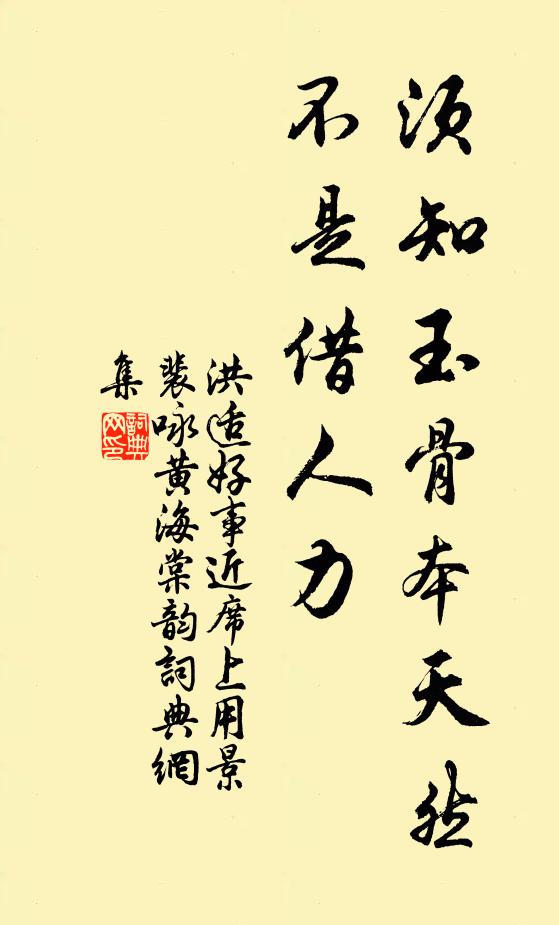 须知玉骨本天然
不是借人力
洪适好事近席上用景
裴咏黄海棠韵詞典網
集
詞典
网印